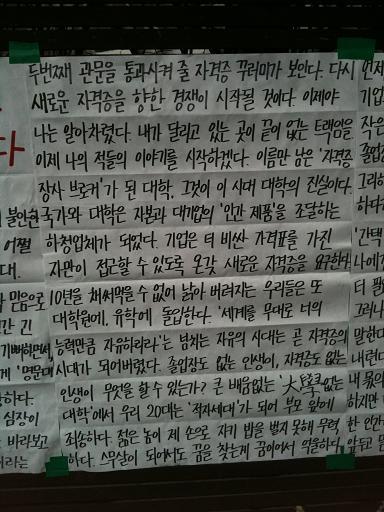 두번째 관문을 통과시켜 줄 자격증 꾸러미가 보인다. 다시
새로운 자격증을 향한 경쟁이 시작될 것이다. 이제야
나는 알아차렸다. 내가 달리고 있는 곳이 끝이 없는 트랙임을
이제 나의 적들의 이야기를 시작하겠다. 이름만 남은 '자격증
장사 브로커'가 된 대학. 그것이 이 시대 대학의 진실이다.
국가와 대학은 자본과 대기업의 '인간 제품'을 조달하는
하청업체가 되었다. 기업은 더 비싼 가격표를 가진
자만이 접근할 수 있도록 온갖 새로운 자격증을 요구한다
10년을 채 써먹을 수 없어 낡아 버려지는 우리들은 또
대학원에, 유학에 돌입한다. '세계를 무대로 너의
능력만큼 자유하리라'는 넘치는 자유의 시대는 곧 자격증의
시대가 되어버렸다. 졸업장도 없는 인생이, 자격증도 없는
인생이 무엇을 할 수 있는가? 큰 배움없는 '大學없는
대학'에서 우리 20대는 '적자세대'가 되어 부모 앞에
죄송하다. 젊은 놈이 제 손으로 자기 밥을 벌지 못해 무력
하다. 스무살이 되어서도 꿈을 찾는게 꿈이어서 억울하다.
다
불안한
어쩔
대.
믿음으로
긴
기뻐하면서,
'명문대
하다.
심장이
바라보고
라는
언제
기업
작은
졸업
그리하
하다
'간택
나에
더
그러나
말한다
내 몫의
하지만
한 인간
앞두고